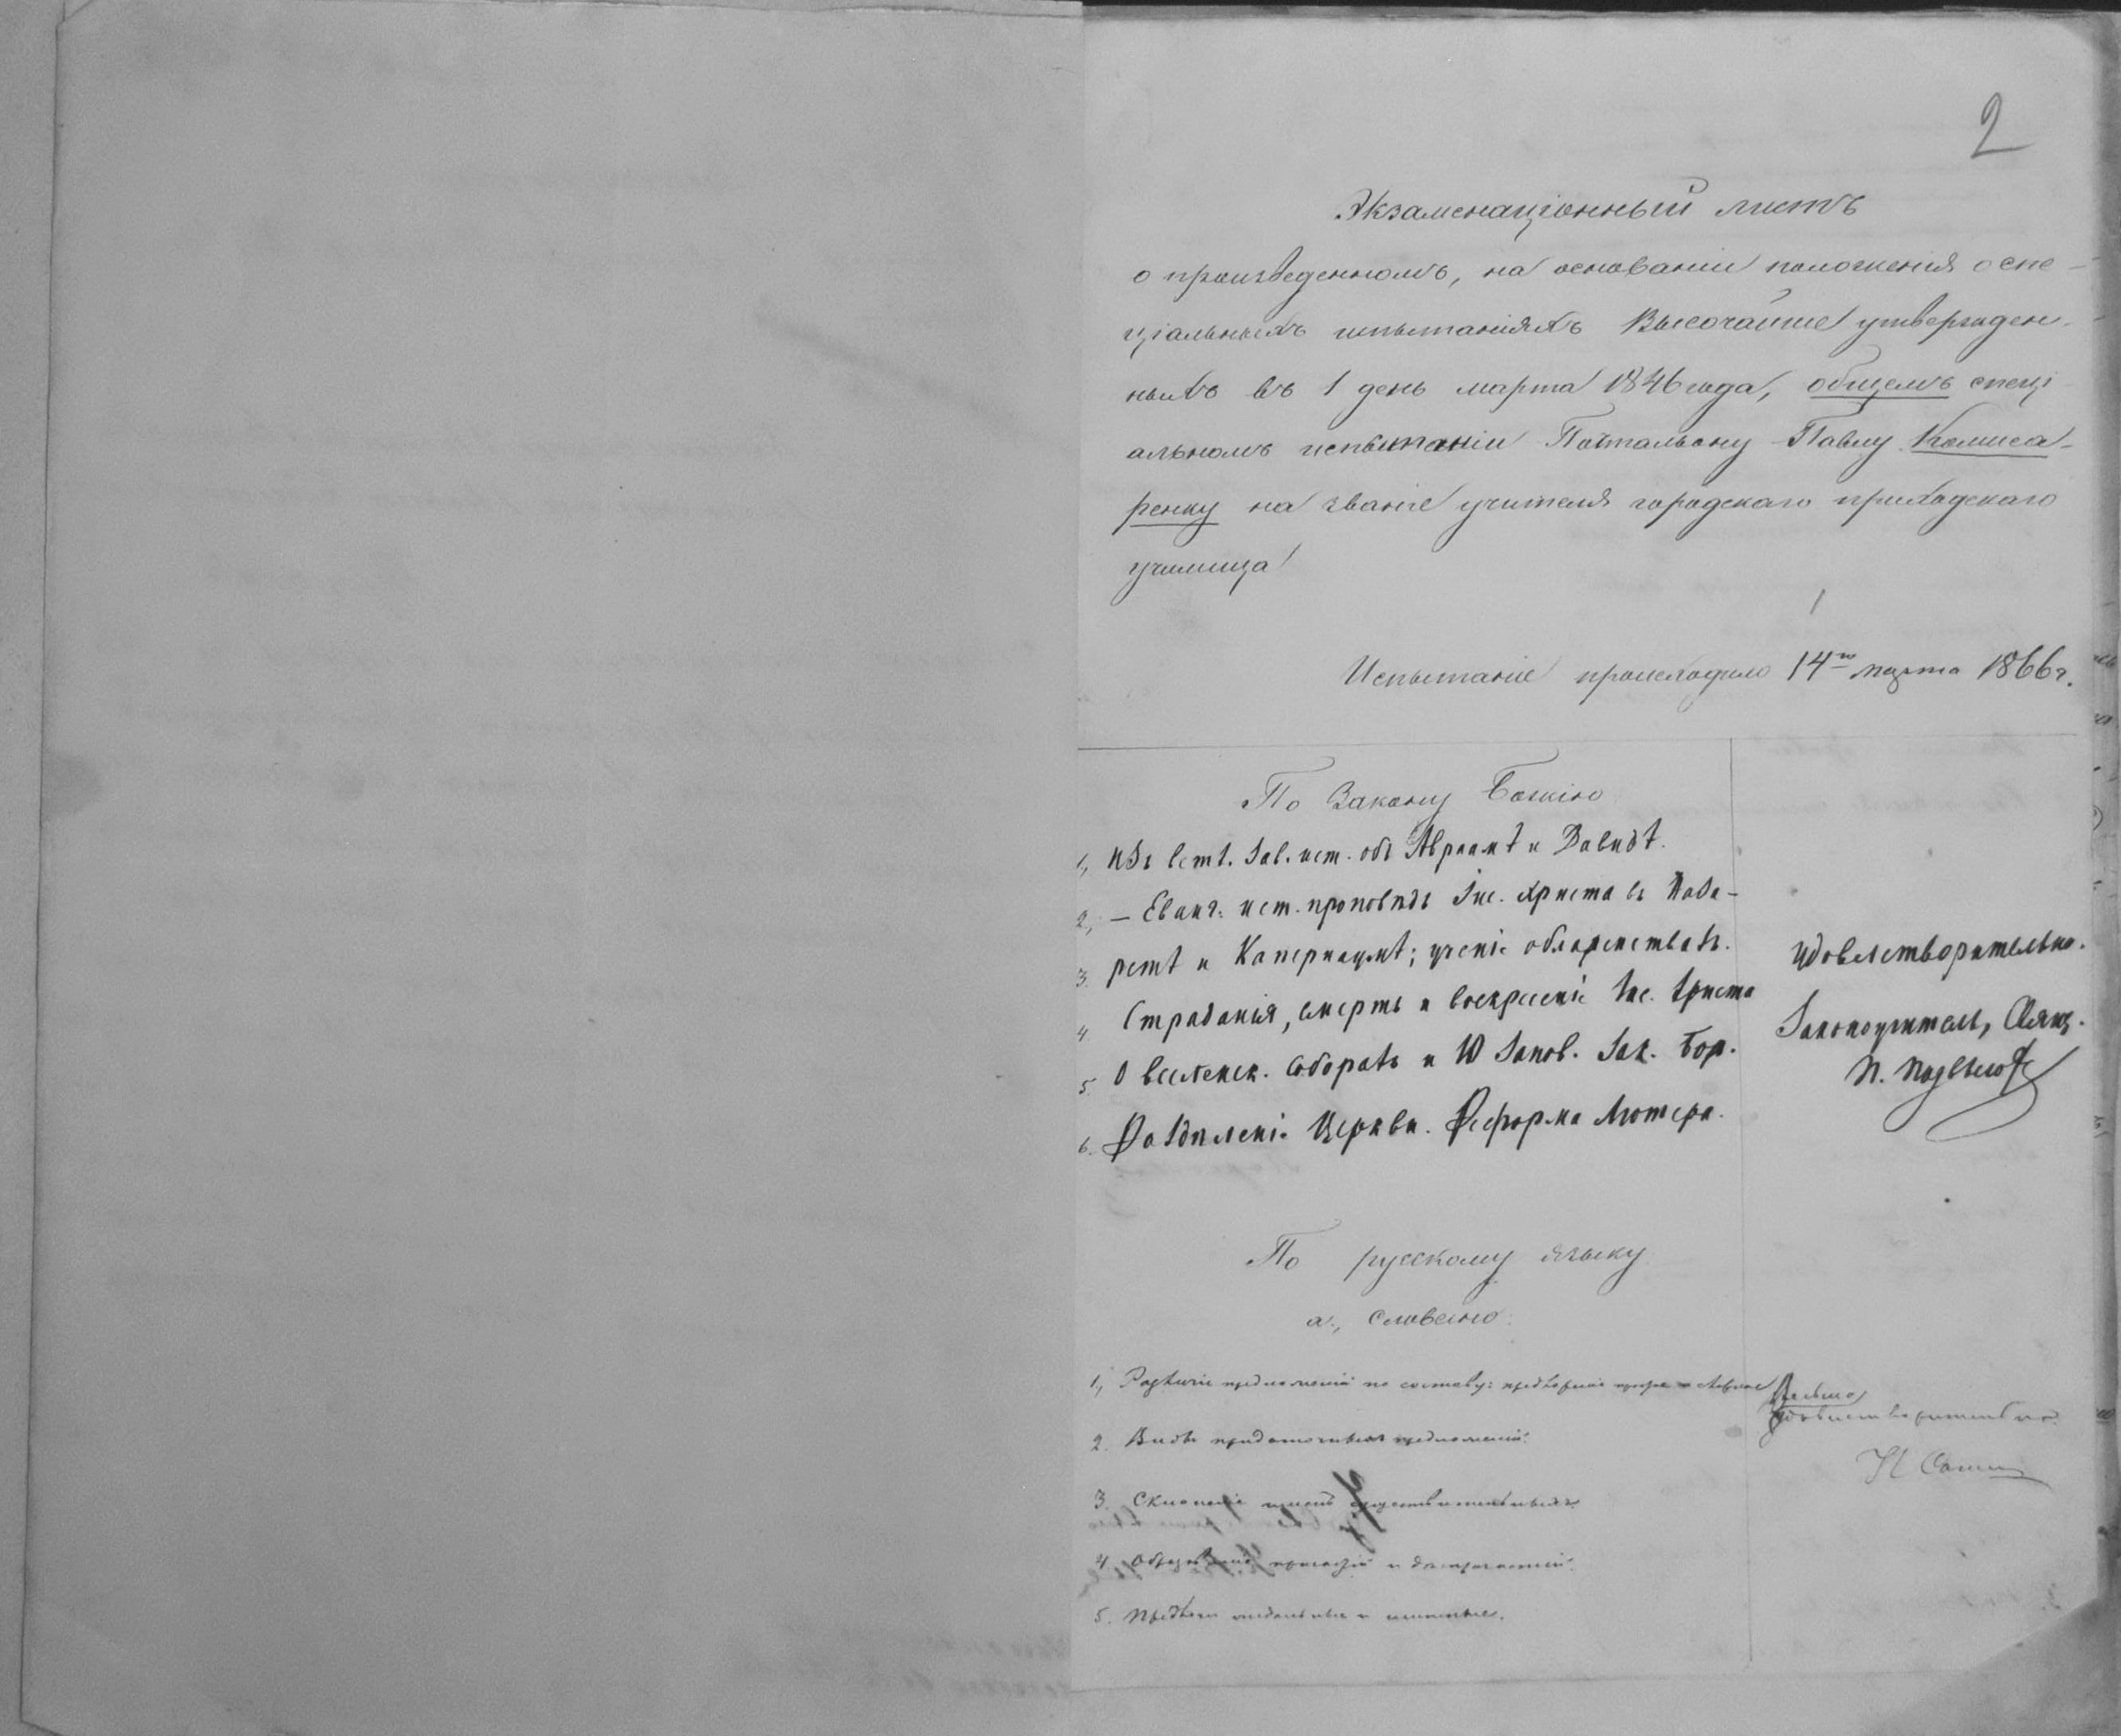 2
Экзаменаціонный листъ
о произведенномъ, на основаніи положенія о спе-
ціальныхъ испытаніяхъ Высочайше утвержден-
ныхъ въ 1 день марта 1846 года, общемъ спеці
альномъ испытаніи Почтальону Павлу Комиса-
ренку на званіе учителя городскаго приходскаго
училища
Испытаніе происходило 14го марта 1866 г.
По Закону Божію
1, Изъ ветх. зав. ист. объ Авраамѣ и Давидѣ.
2, — Еванг. ист. проповѣдь Іис. Христа въ Наза-
3. ретѣ и Капернаумѣ; ученіе о блаженствахъ.
4 Страданія, смерть и воскресеніе Іис. Христа
5. О вселенск. соборахъ и 10 запов. Зак. Бож.
6. Раздѣленіе Церкви. Реформа Лютера.
Удовлетворительно.
Законоучитель, Свящ.
П.
По русскому языку
а., Словесно
1, Различіе предложеній по составу:
2. Виды придаточныхъ предложеній.
3. Склоненіе именъ существительныхъ.
4. Образованіе причастій и дѣепричастій.
5. Предлоги отдѣльные и слитные.
Весьма
удовлетворительно.